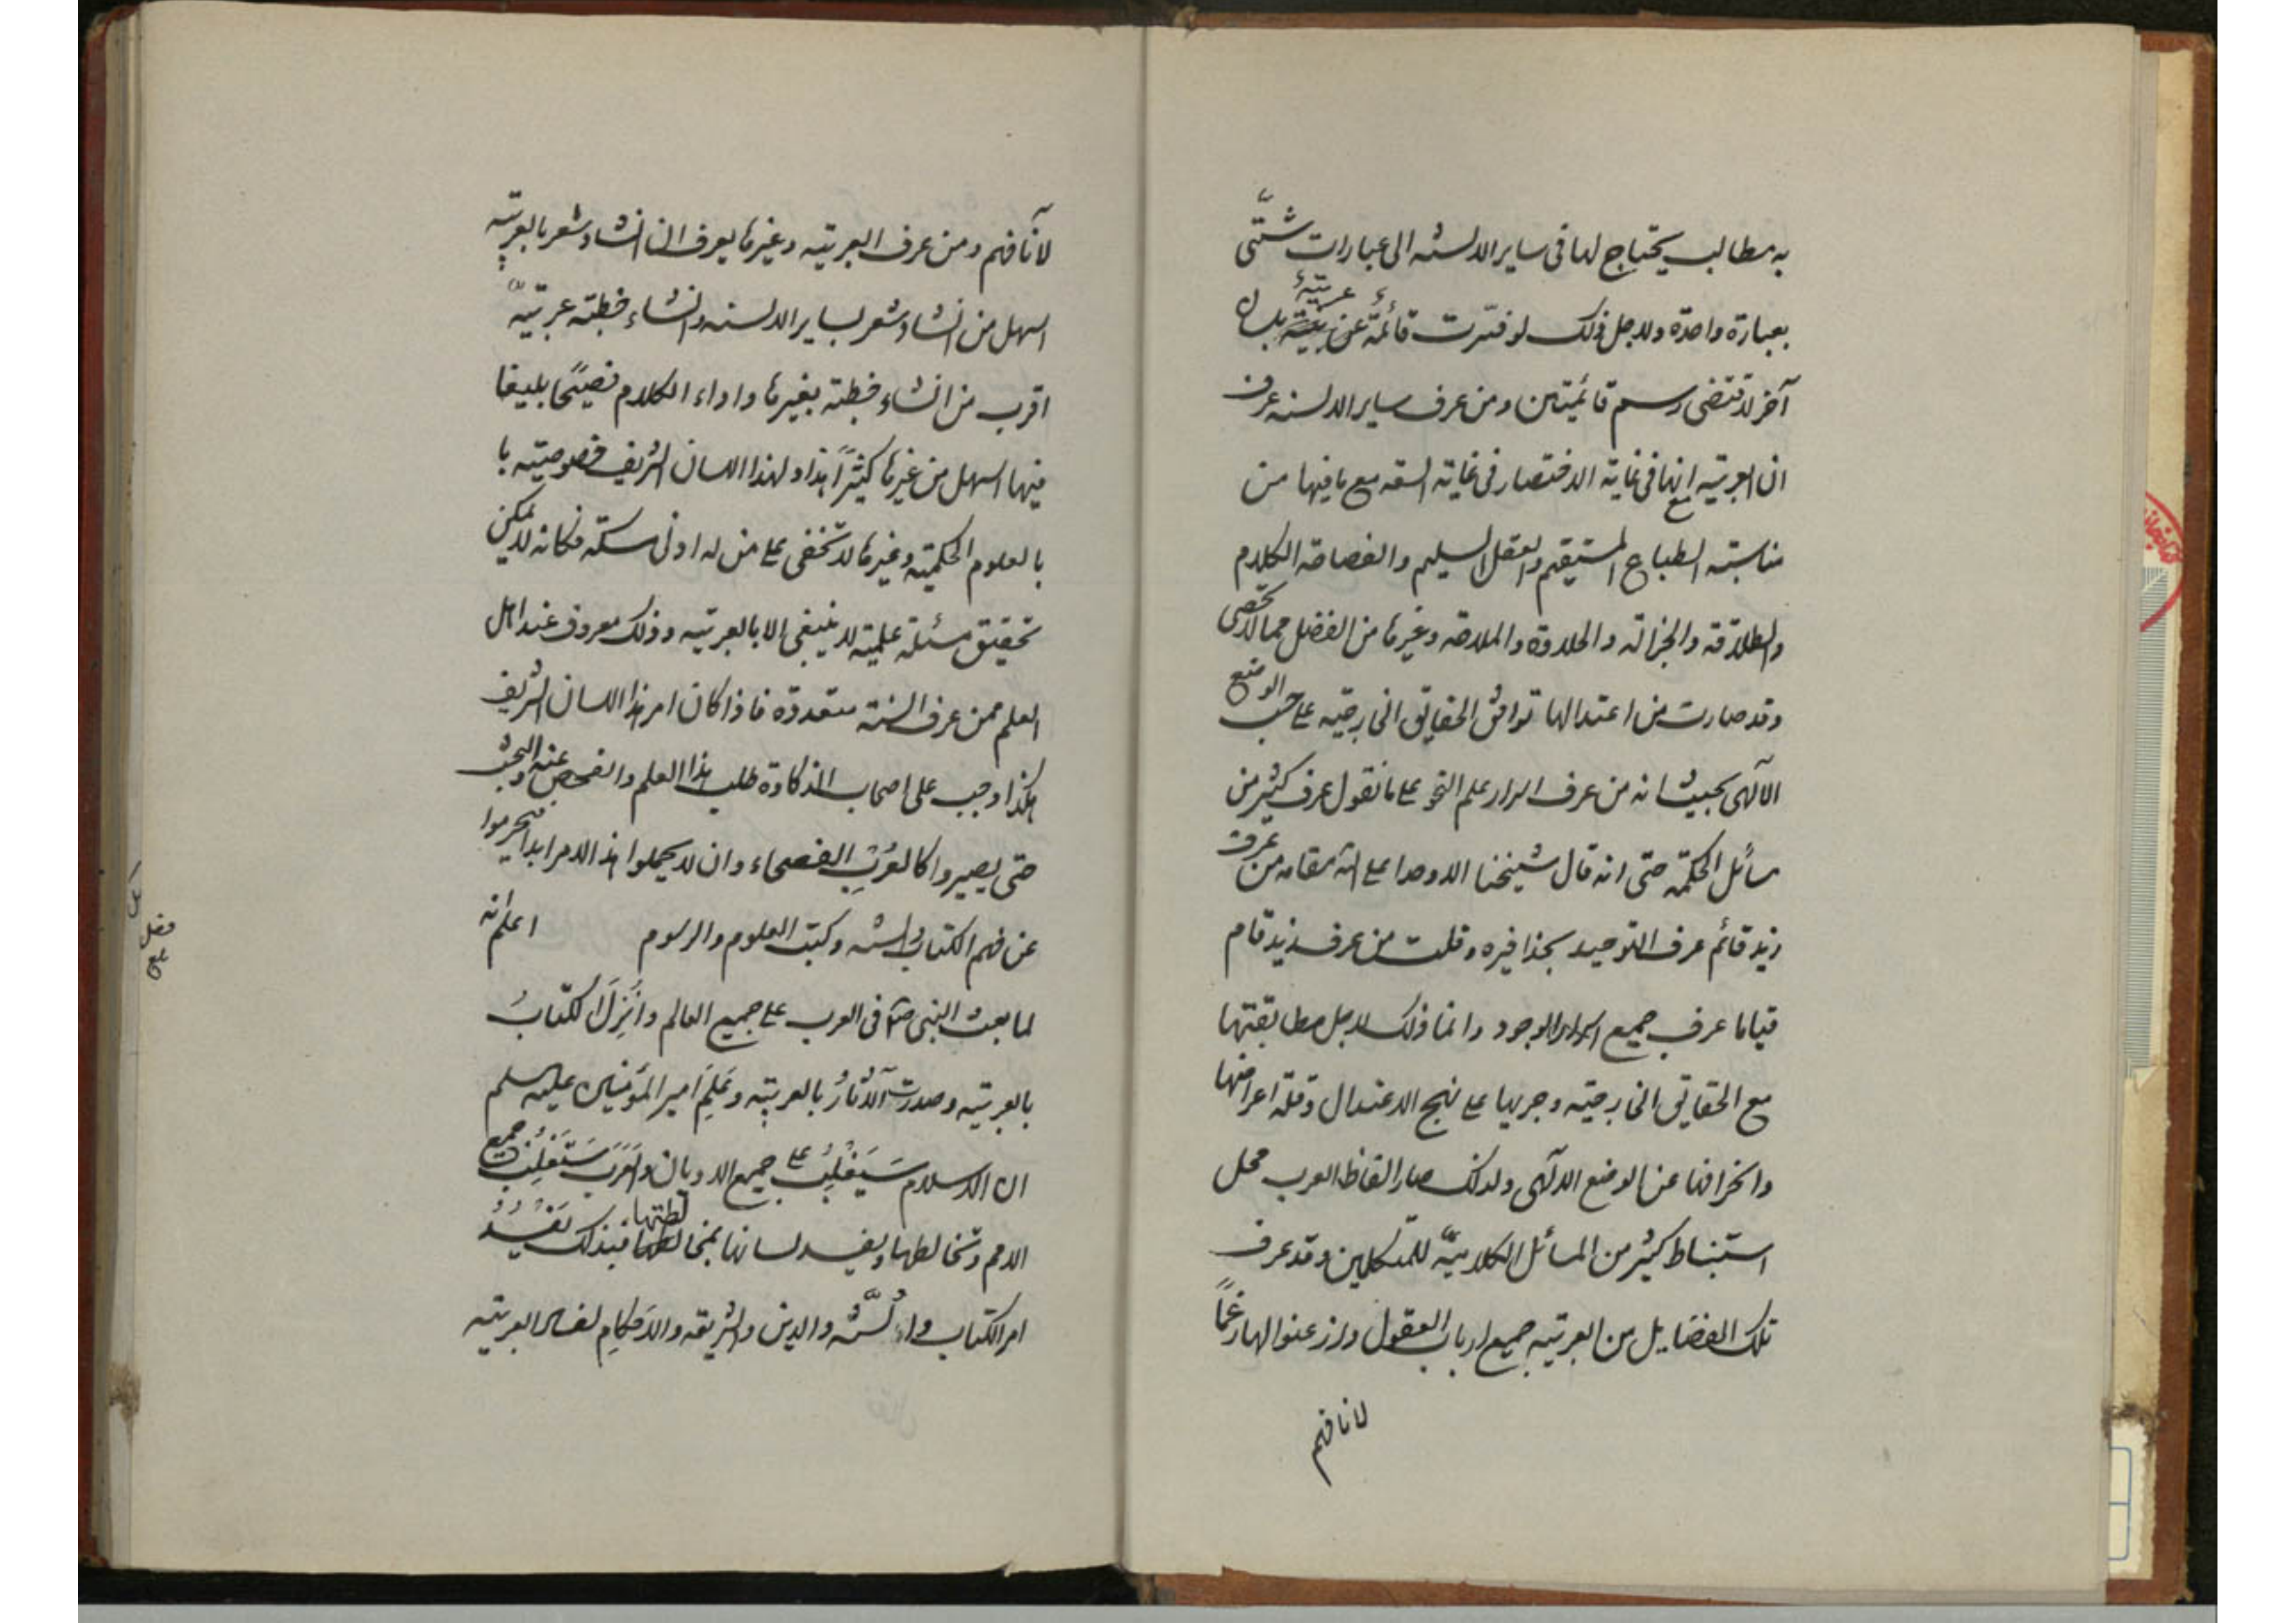 به مطالب يحتاج لها فى ساير الالسنه الى عبارات شتّى
بعبارة واحدة ولاجل ذلك لو فسّرت قائمة عن عربيّة بلسان
آخر لاقتضى رسم قائمتين ومن عرف ساير الالسنه عرف
ان العربيه انها فى غاية الاختصار فى غاية السعه مع ما فيها من
مناسبته الطباع المستيقم والعقل السليم والفصاحة الكلام
والطلاقة والجزالة والحلاوة والملاحة وغيرها من الفضل مما لا تحصى
وقد صارت من اعتدالها توافق الحقايق الخارجيه على حسب الوضع
الالهى بحيث انه من عرف اسرار علم النحو على ما نقول عرف كثير من
مسائل الحكمة حتى انه قال شيخنا الاوحد اعلى الله مقامه من عرف
زيد قائم عرف التوحيد بحذافيره وقلت من عرف زيد قام
قياما عرف جميع اسرار الوجود وانما ذلك لاجل مطابقتها
مع الحقايق الخارجيّه وجريها على نهج الاعتدال وقلة اعراضها
وانحرافها عن الوضع الالهى ولذلك صار الفاظ العرب محل
استنباط كثير من المسائل الكلاميّة للمتكلمين وقد عرف
تلك الفضايل من العربيه جميع ارباب العقول واذعنوا لها رغماً
لانافهم
لآنافهم ومن عرف العربيّه وغيرها يعرف ان انشاد شعر بالعربيّه
اسهل من انشاد شعر بساير الالسنه وانشاء خطبته عربيّه
اقرب من انشاء خطبته بغيرها واداء الكلام فصيحًا بليغا
فيها اسهل من غيرها كثيراً هذا ولهذا اللسان الشريف خصوصيّته با
بالعلوم الحكميّه وغيرها لا تخفى على من له ادنى مسكة فكانه لا يمكن
تحقيق مسئلة علميّه لا ينبغى الا بالعربيّه وذلك معروف عند اهل
العلم ممن عرف السنة متعددة فاذا كان امر هذا اللسان الشريف
هكذا وجب على اصحاب الذكاوة طلب هذا العلم والفحص عنه والبحث
حتى يصيروا كالعرب الفصحاء وان لا يهملوا هذا الامر ابدا فيحرموا
عن فهم الكتاب والسنه وكتب العلوم والرسوم اعلم انه
لما بعث النبى ص فى العرب على جميع العالم وانزل الكتاب
بالعربيّه وصدرت الآثار بالعربيّه وعلم امير المؤمنين عليه السلم
ان الاسلام سيغلب على جميع الاديان والعرب ستغلب جميع
الامم وتخالطها ويفسد لسانها بمخالطتها فبذلك يفسد
امر الكتاب والسنّه والدين والشريعه والاحكام لفساد العربيّه
فصل